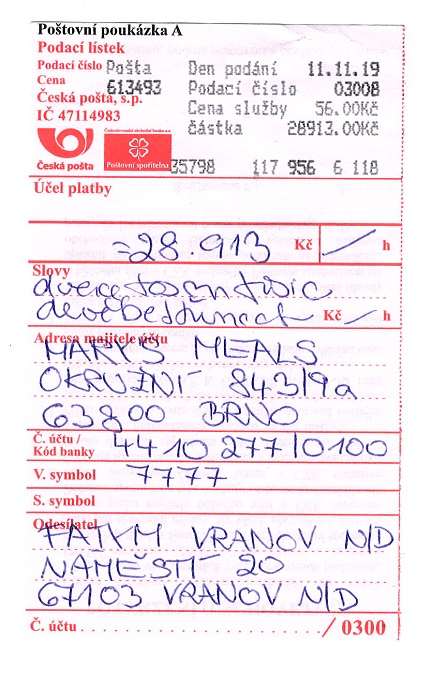 Poštovní poukázka A
Podací lístek
Podací číslo Pošta Den podání 11.11.19
Cena 613493 Podací číslo 03008
Česká pošta, s.p. Cena služby 56.00Kč
IČ 47114983 částka 28913.00Kč
Československá obchodní banka a.s.
Česká pošta Poštovní spořitelna 35798 117 956 6 118
Účel platby
=28.913 Kč / h
Slovy
dvacetosmtisíc
devětsettřináct Kč / h
Adresa majitele účtu
MARY'S MEALS
OKRUŽNÍ 843/9a
63800 BRNO
Č. účtu / Kód banky 4410277/0100
V. symbol 7777
S. symbol
Odesílatel
FATYM VRANOV N/D
NÁMĚSTÍ 20
67103 VRANOV N/D
Č. účtu . . . . . . . . . . . . . . . . . . . . . . . . / 0300